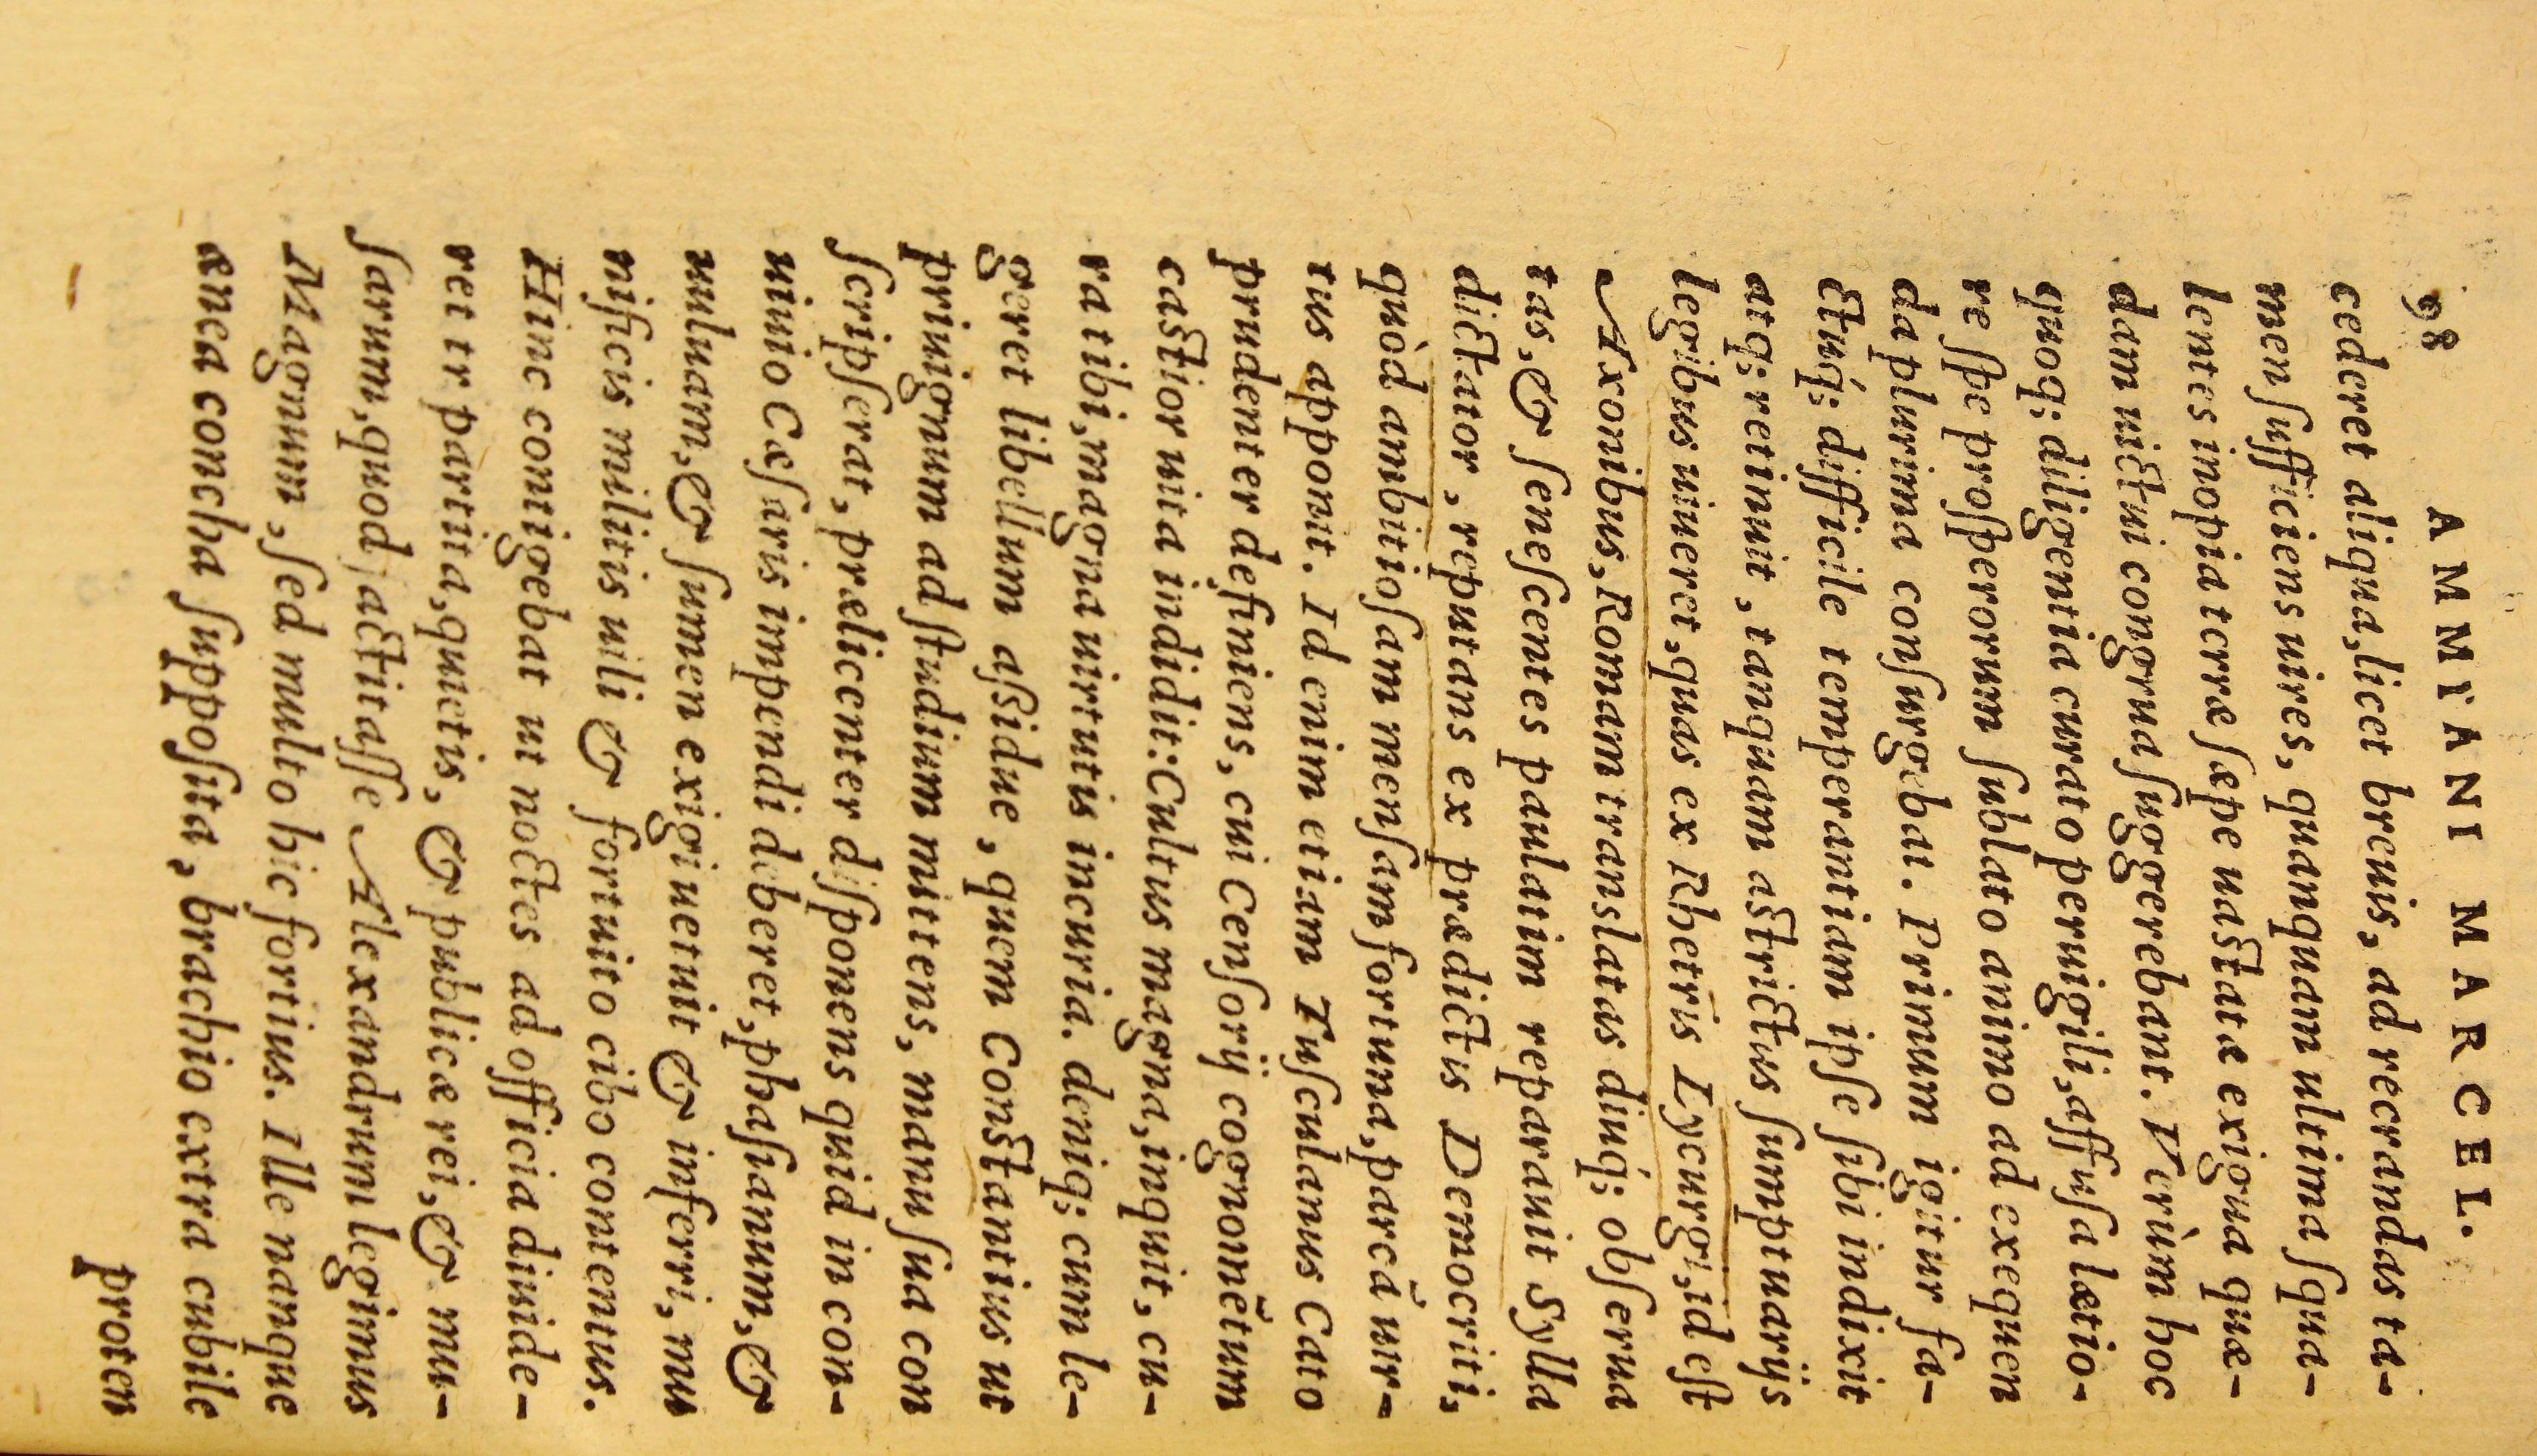 98 AMMIANI MARCEL.
cederet aliqua, licet breuis, ad recrandas ta-
men ſufficiens uires, quanquam ultima ſqua-
lentes inopia terræ ſæpe uaſtatæ exigua quæ-
dam uictui congrua ſuggerebant. Verùm hoc
quoq; diligentia curato peruigili, affuſa lætio-
re ſpe proſperorum ſublato animo ad exequen
da plurima conſurgebat. Primum igitur fa-
ctuq́; difficile temperantiam ipſe ſibi indixit
atq; retinuit, tanquam aſtrictus ſumptuarijs
legibus uiueret, quas ex Rhetris Lycurgi, id eſt
Axonibus, Romam translatas diuq́; obſerua
tas, & ſeneſcentes paulatim reparauit Sylla
dictator, reputans ex prædictis Democriti,
quòd ambitioſam menſam fortuna, parcā uir-
tus apponit. Id enim etiam Tuſculanus Cato
prudenter definiens, cui Cenſorij cognomētum
caſtior uita indidit: Cultus magna, inquit, cu-
ra tibi, magna uirtutis incuria. deniq; cum le-
geret libellum aſsidue, quem Conſtantius ut
priuignum ad ſtudium mittens, manu ſua con
ſcripſerat, prælicenter diſponens quid in con-
uiuio Cæſaris impendi deberet, phaſianum, &
uuluam, & ſumen exigi uetuit & inferri, mu
nificis militis uili & fortuito cibo contentus.
Hinc contigebat ut noctes ad officia diuide-
ret tripartita, quietis, & publicæ rei, & mu-
ſarum, quod factitaſſe Alexandrum legimus
Magnum, ſed multo hic fortius. Ille nanque
ænea concha ſuppoſita, brachio extra cubile
proten